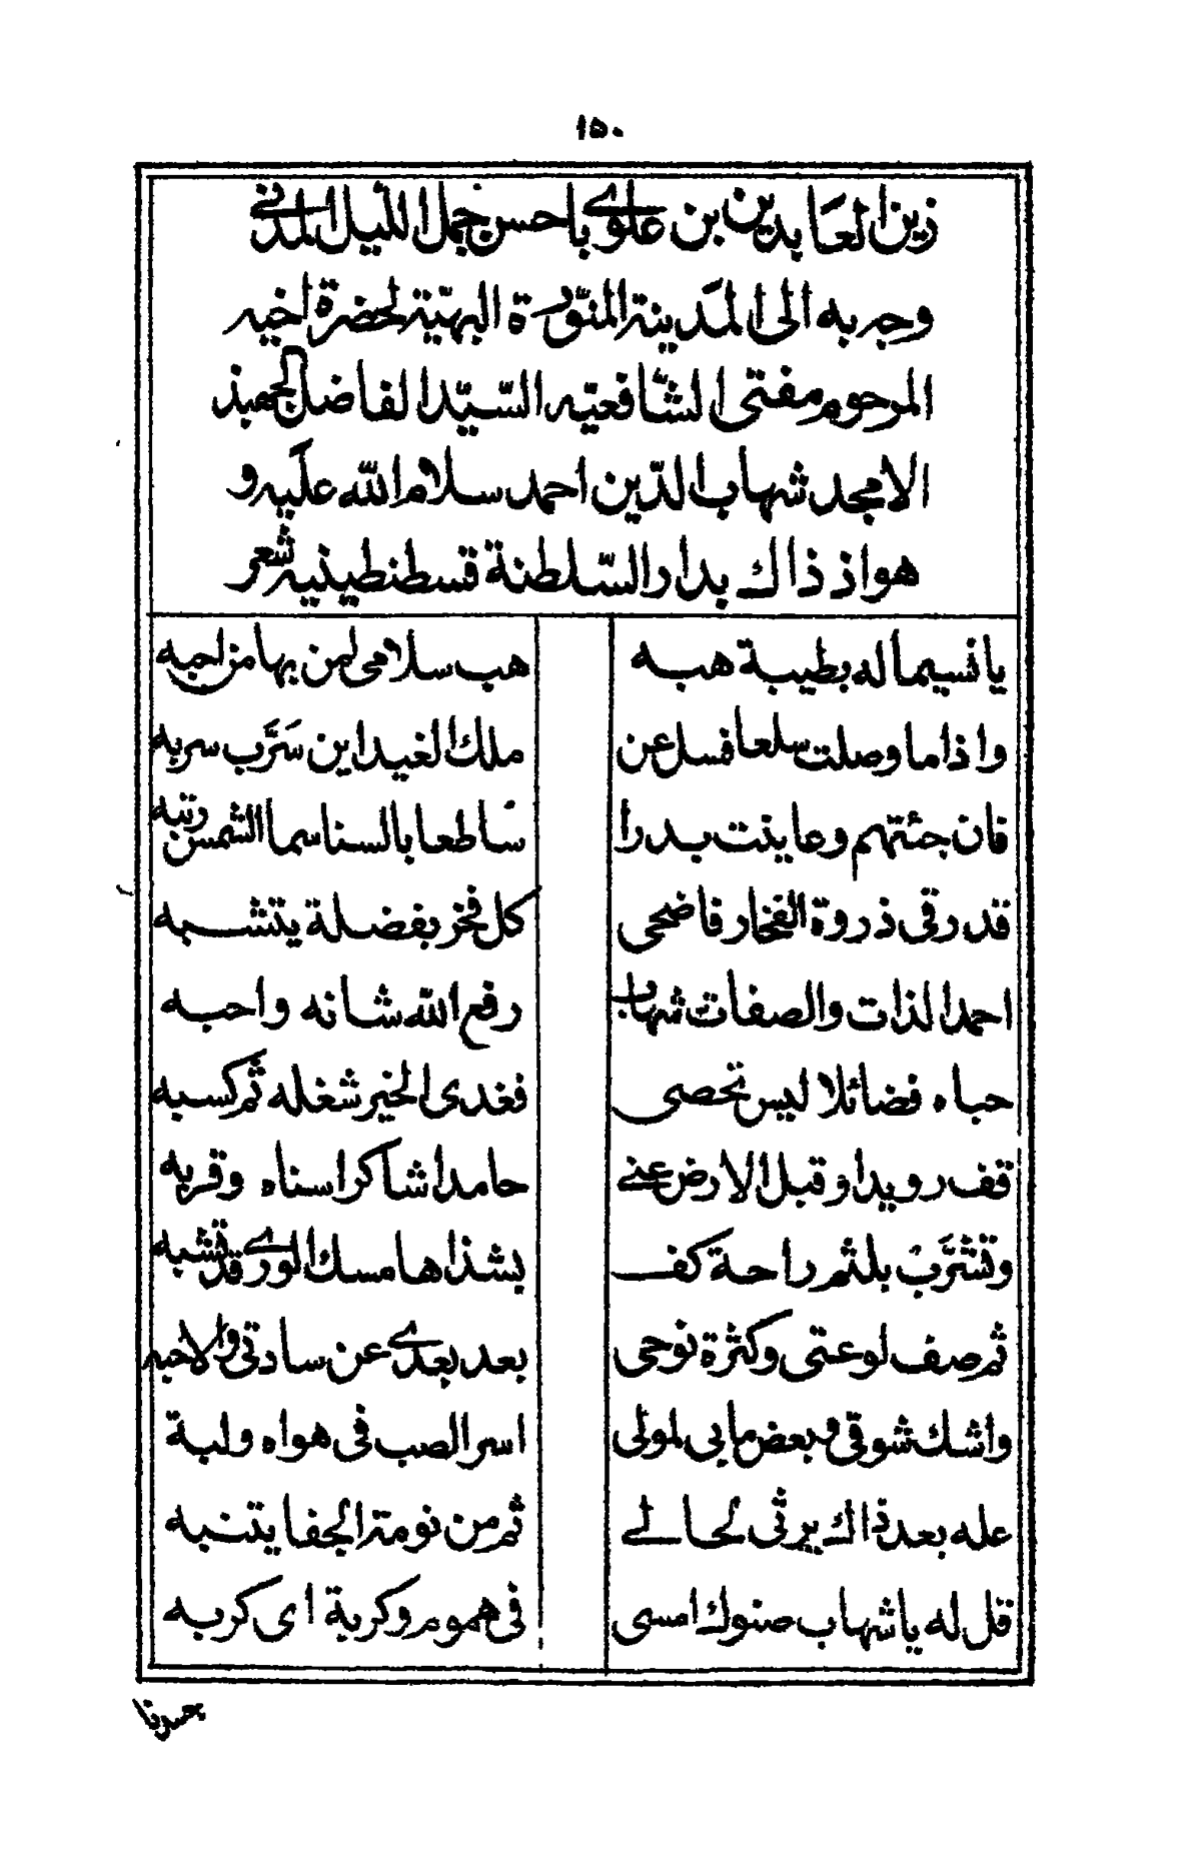 ١٥٠
زين العابدين بن علوي باحسن جمل الليل المدني
وجر به الى المدينة المنوّرة البهيّة لحضرة اخيه
المرحوم مفتى الشّافعيّه السّيّد الفاضل الجهبذ
الامجد شهاب الدّين احمد سلام الله عليه و
هو اذ ذاك بدار السّلطنة قسطنطينيه شعر
يا نسيما له بطيبة هبه هب سلامى لمن بها من احبه
واذا ما وصلت سلعا فسل عن ملك الغيد اين سَرَّب سربه
فان جئتهم وعاينت بدرا ساطعا بالسنا سما الشمس رتبه
قد رقى ذروة الفخار فاضحى كل فخر بفضلة يتشبه
احمد الذات والصفات شهاب رفع الله شانه واحبه
حباه فضائلا ليس تحصى فغدى الخير شغله ثم كسبه
قف رويدا وقبل الارض عني حامدا شاكرا سناه وقربه
وتشرَّبْ بلثم راحة كف بشذاها مسك الورى قد تشبه
ثم صف لوعتى وكثرة نوحى بعد بعدي عن سادتى والاحبه
واشك شوقى وبعض ما بى لمولى اسر الصب فى هواه ولبة
عله بعد ذاك يرثى لحالي ثم من نومة الجفا يتنبه
قل له يا شهاب صنوك امسى فى هموم وكربة اى كربه